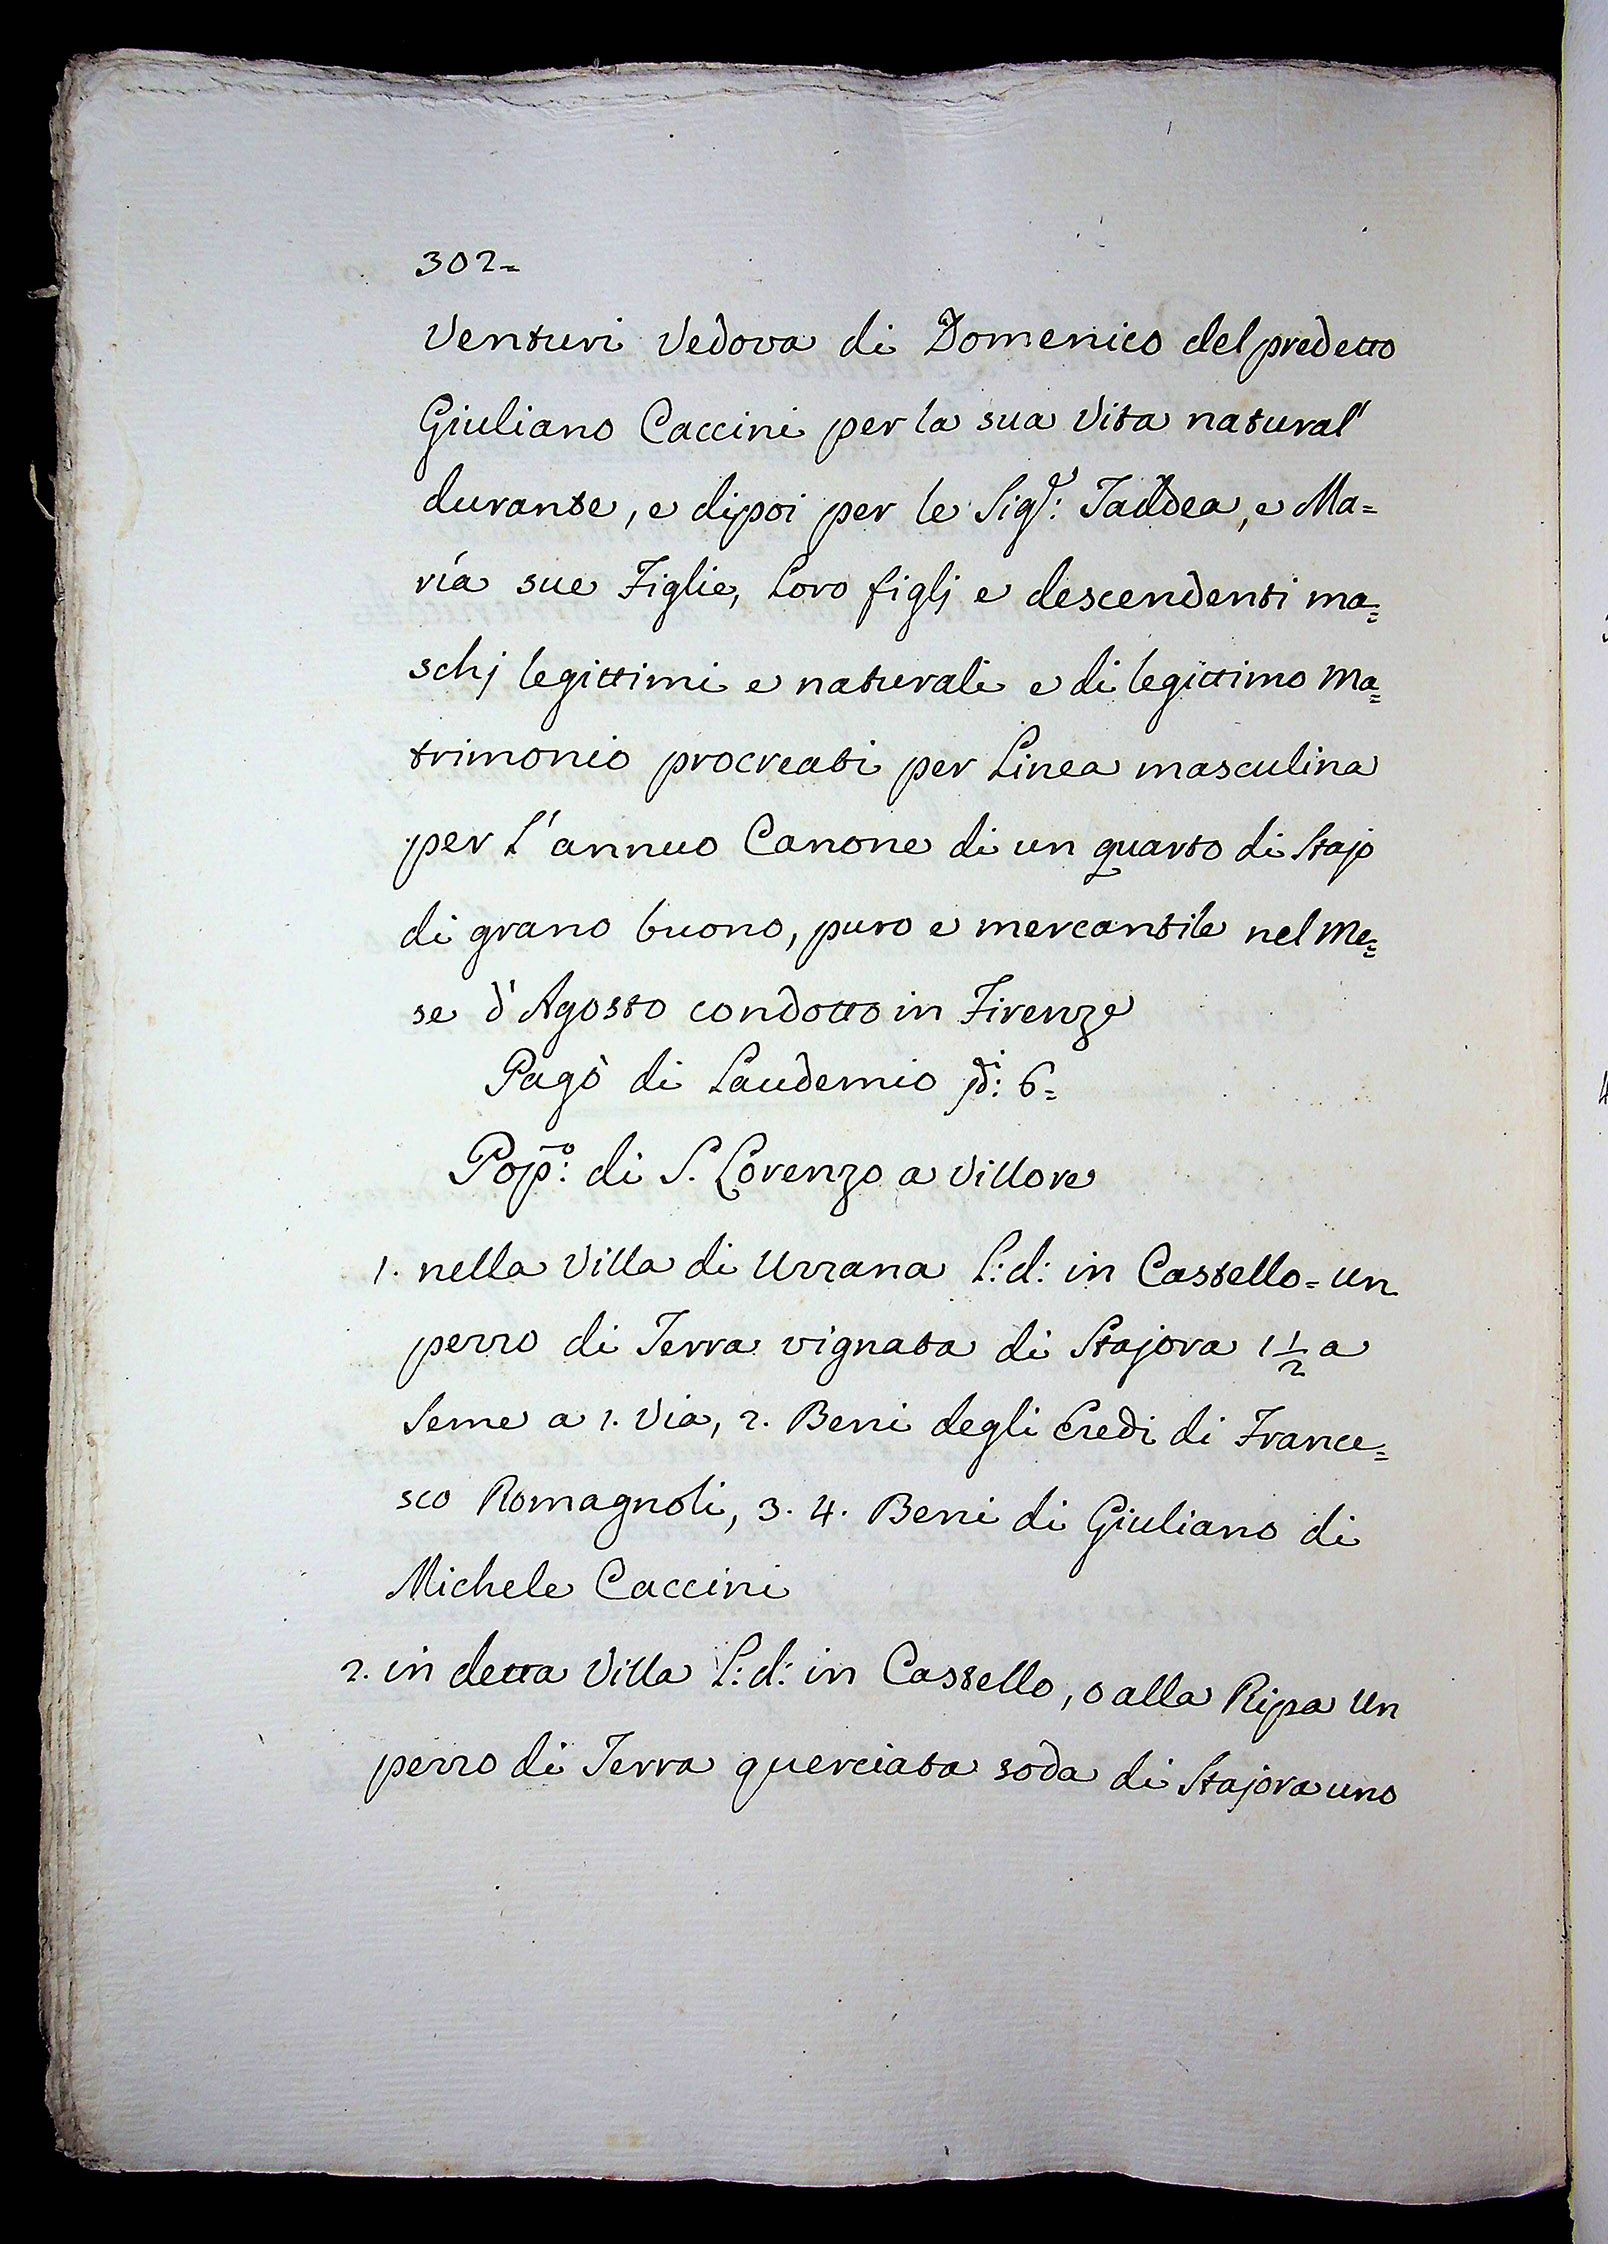 302=
Venturi Vedova di Domenico del predetto
Giuliano Caccini per la sua Vita natural'
durante, e dipoi per le Sigre: Taddea, e Ma=
ria sue Figlie, Loro figlj e descendenti ma=
schj legittimi e naturali e di legittimo Ma=
trimonio procreati per Linea masculina
per L'annuo Canone di un quarto di Stajo
di grano buono, puro e mercantile nel Me=
se d'Agosto condotto in Firenze
Pagò di Laudemio pdi: 6=
Popo: di S. Lorenzo a Villore
1. nella Villa di Uzzana L: d: in Castello = un
pezzo di Terra vignata di Stajora 1 1/2 a
Seme a 1. Via, 2. Beni degli Eredi di France=
sco Romagnoli, 3. 4. Beni di Giuliano di
Michele Caccini
2. in detta Villa L: d: in Castello, o alla Ripa Un
pezzo di Terra querciata soda di Stajora uno